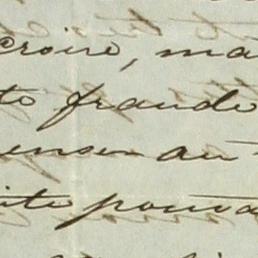 croire, ma
te fraude
enser au
ite pouva